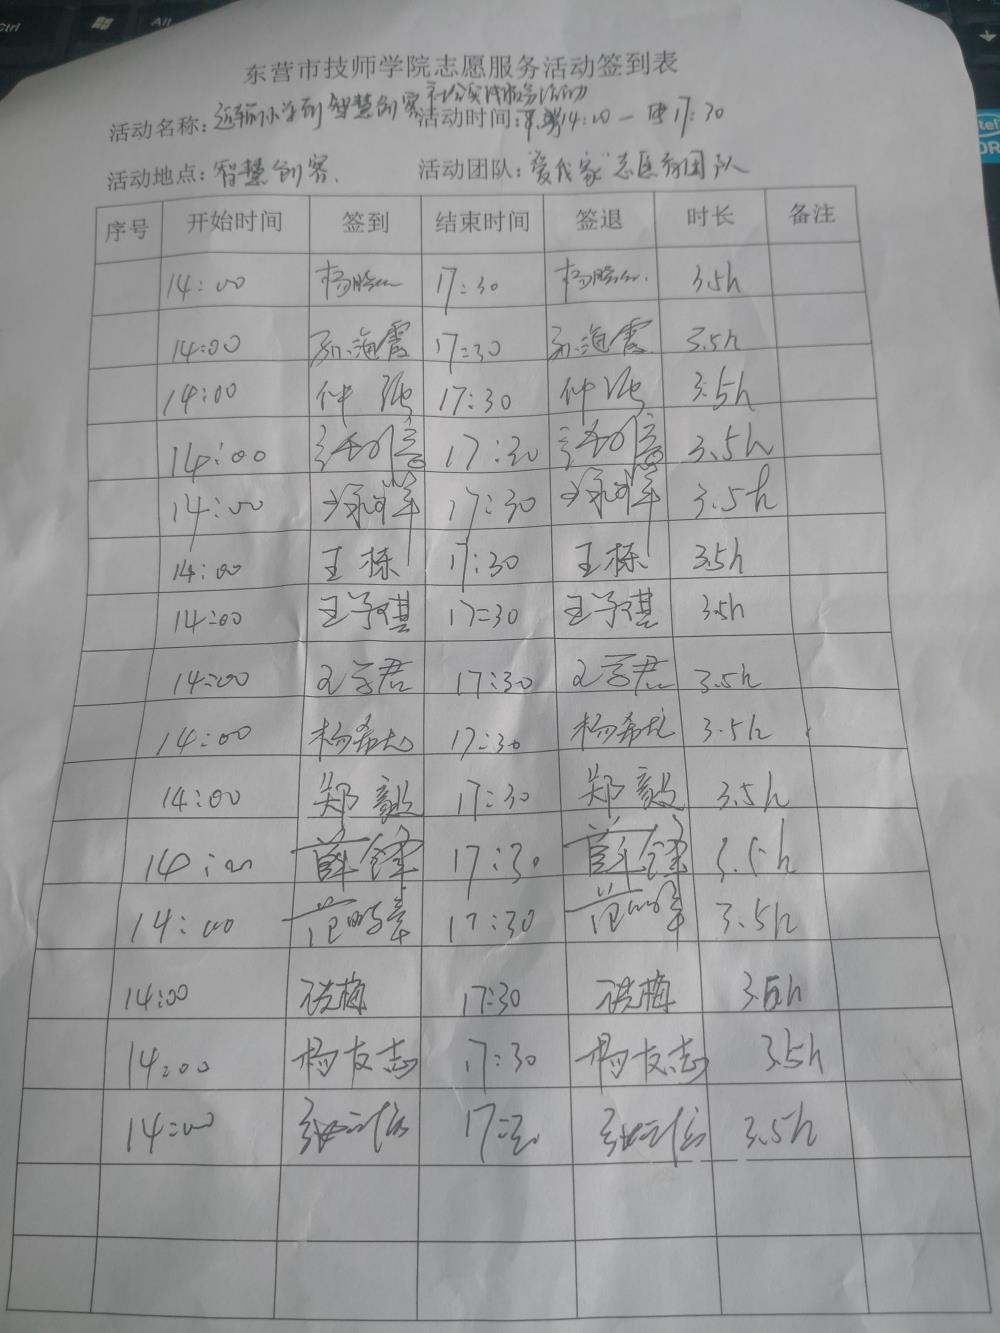 Ctrl
Alt
intel
东营市技师学院志愿服务活动签到表
活动名称：小学到智慧创客社会实践服务活动
活动时间：14:00—17:30
活动地点：智慧创客.
活动团队："爱我家"志愿者团队
序号 开始时间 签到 结束时间 签退 时长 备注
14:00 杨 17:30 杨 3.5h
14:00 孙海霞 17:30 孙海霞 3.5h
14:00 仲强 17:30 仲强 3.5h
14:00 17:30 3.5h
14:00 17:30 3.5h
14:00 王栋 17:30 王栋 3.5h
14:00 王子琪 17:30 王子琪 3.5h
14:00 君 17:30 君 3.5h
14:00 杨希尤 17:30 杨希尤 3.5h
14:00 郑毅 17:30 郑毅 3.5h
14:00 薛锋 17:30 薛锋 3.5h
14:00 范鹏 17:30 范鹏 3.5h
14:00 洪梅 17:30 洪梅 3.5h
14:00 杨友志 17:30 杨友志 3.5h
14:00 17:30 3.5h